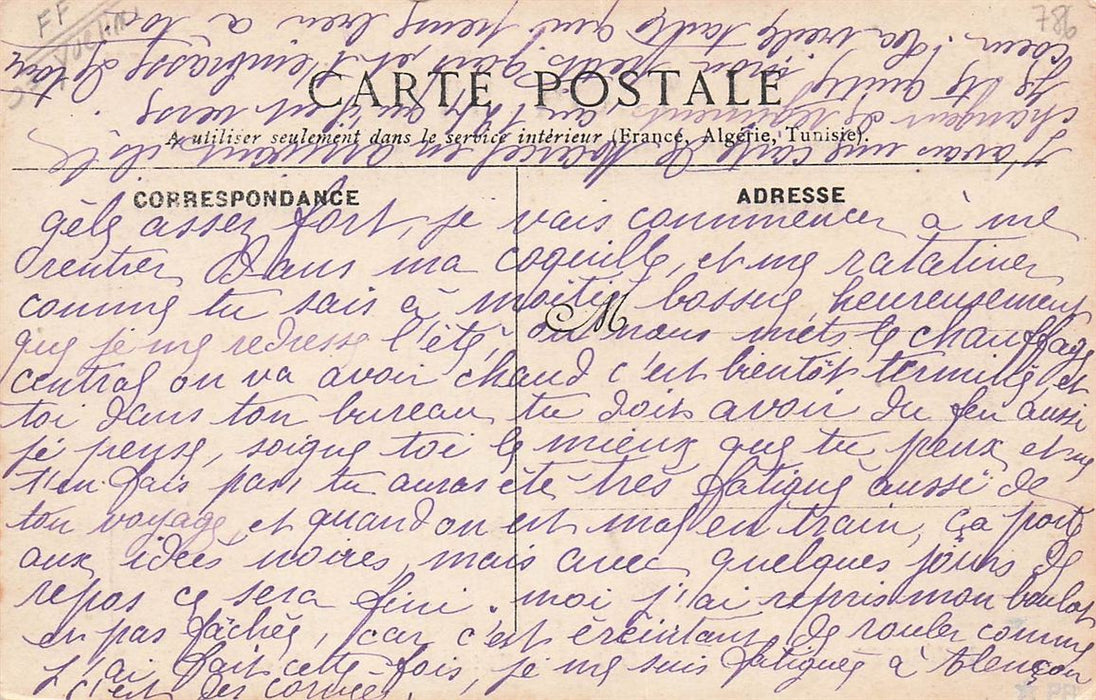 786
FF
CARTE POSTALE
A utiliser seulement dans le service intérieur (France, Algérie, Tunisie).
CORRESPONDANCE
ADRESSE
M
gèle assez fort, je vais commencer à me
rentrer dans ma coquille, et me ratatiner
comme tu sais à moitié bossue, heureusement
que je me redresse l'été, on nous mets le chauffage
central on va avoir chaud c'est bientôt terminé, et
toi dans ton bureau tu dois avoir du feu aussi
je pense, soigne toi le mieux que tu peux et ne
t'en fais pas, tu auras été très fatigué aussi de
ton voyage, et quand on est mal en train, ça porte
aux idées noires, mais avec quelques jours de
repos ce sera fini. moi j'ai repris mon boulot
en pas fâchée, car c'est éreintant de rouler comme
j'ai fait cette fois, je me suis fatiguée à Alençon
c'est des corvées.
J'avais une carte de Marcel en arrivant
changeur de régiments,
Je te quitte mon petit gars et t'embrasse de tout
cœur. Ta vieille tante qui pense bien à toi